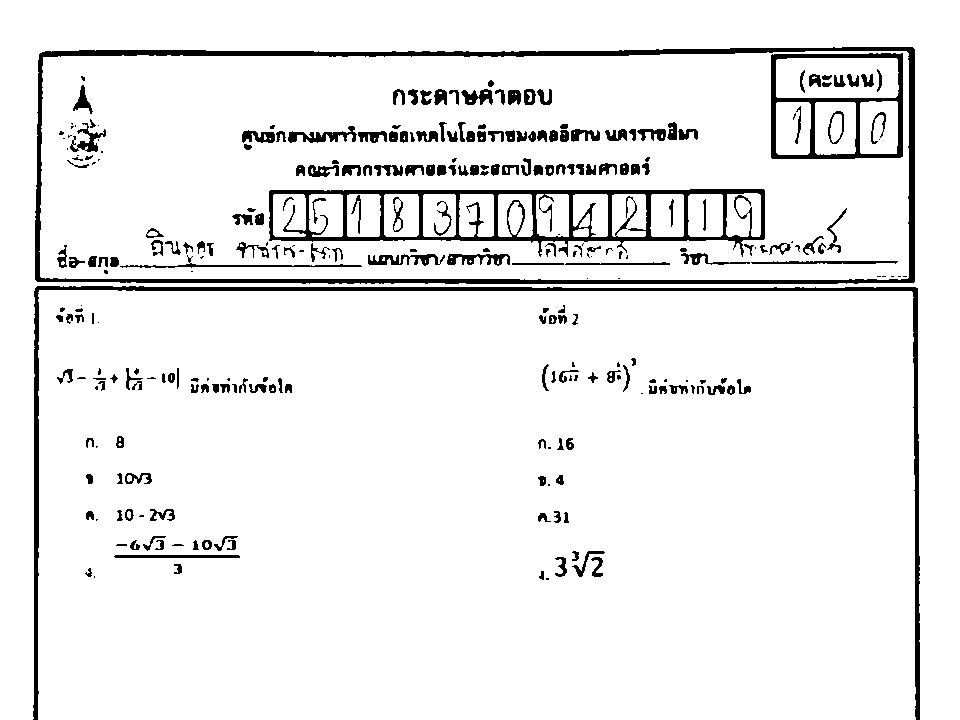 กระดาษคำตอบ
(คะแนน)
100
ศูนย์กลางมหาวิทยาลัยเทคโนโลยีราชมงคลอีสาน นครราชสีมา
คณะวิศวกรรมศาสตร์และสถาปัตยกรรมศาสตร์
รหัส 2518370942119
ชื่อ-สกุล แผนกวิชา/สาขาวิชา วิชา วิทยาศาสตร์
ข้อที่ 1.
มีค่าเท่ากับข้อใด
ก. 8
ข 10√3
ค. 10 - 2√3
ง. (-6√3 - 10√3)/3
ข้อที่ 2
มีค่าเท่ากับข้อใด
ก. 16
ข. 4
ค. 31
ง. 3∛2